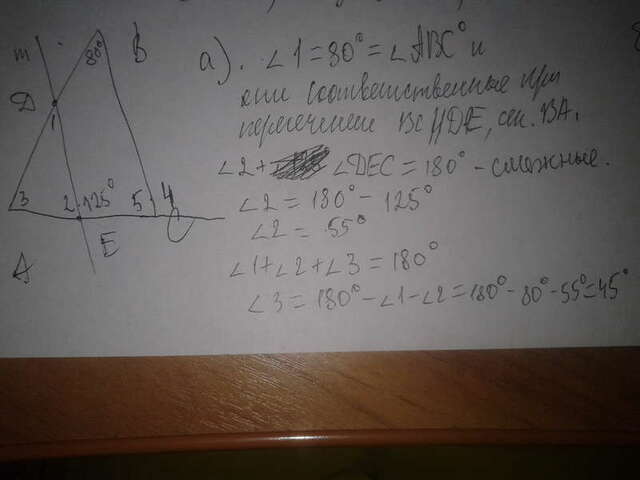 m
B
80°
D
1
3
2
125°
5
4
E
A
а). ∠1=80°=∠ABC° и
они соответственные при
пересечении BC||DE, сек. BA.
∠2+ ∠DEC = 180° - смежные.
∠2 = 180° - 125°
∠2 = 55°
∠1+∠2+∠3 = 180°
∠3 = 180°-∠1-∠2=180°-80°-55°=45°